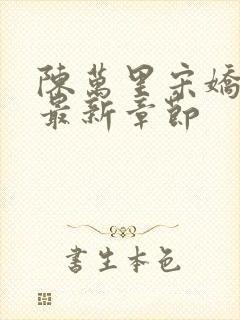 陳萬里宋嬌
最新章節
書生本色